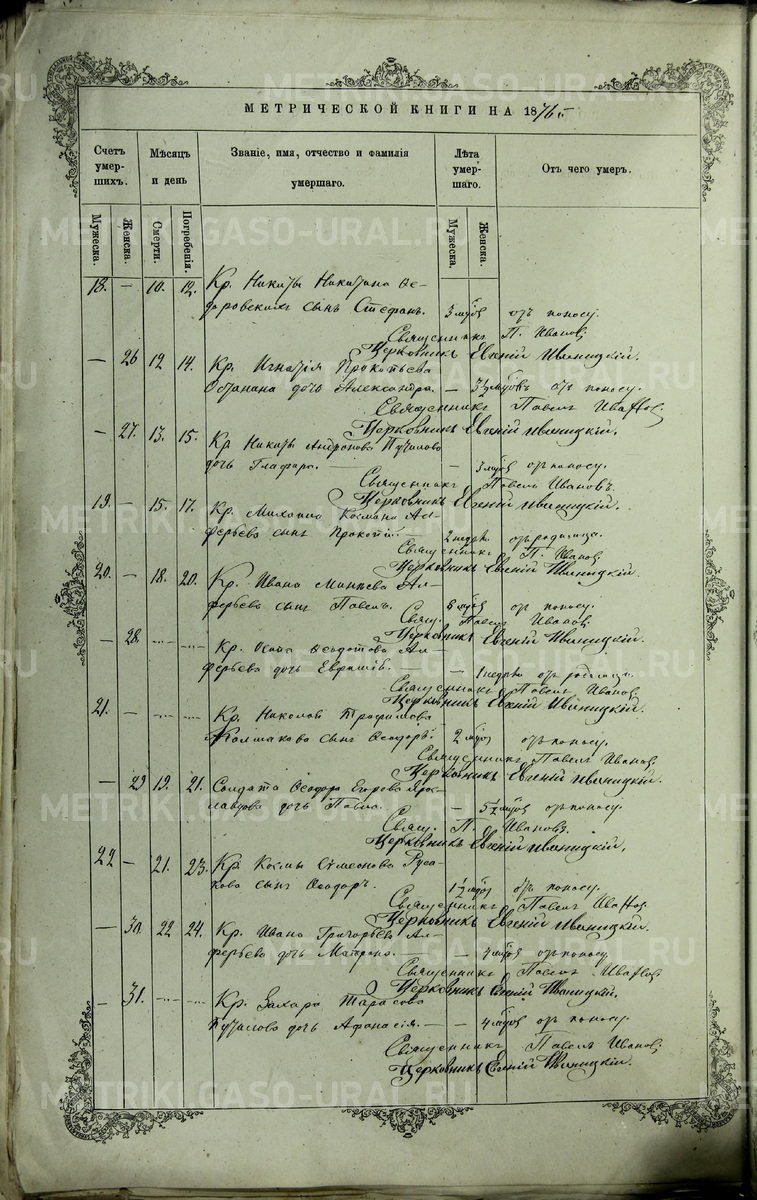 МЕТРИЧЕСКОЙ КНИГИ НА 1876
Счетъ умершихъ.
Мѣсяцъ и день
Званіе, имя, отчество и фамилія умершаго.
Лѣта умершаго.
Отъ чего умеръ.
Мужеска.
Женска.
Смерти.
Погребенія.
Мужеска.
Женска.
18. — 10. 12. Кр. Никиты Никитина Ѳе-
доровскихъ сынъ Стефанъ. 3 мцов отъ поносу.
Священникъ П. Ивановъ
Церковникъ Евгеній Иваницкій.
— 26 12 14. Кр. Игнатія Прокопьева
дочь Александра. — 3½ мцовъ отъ поносу.
Священникъ Павелъ Ивановъ.
Церковникъ Евгеній Иваницкій.
— 27. 13. 15. Кр. Никиты Андронова
дочь Глафира. — 3 мцов отъ поносу.
Священникъ Павелъ Ивановъ.
Церковникъ Евгеній Иваницкій.
19. — 15. 17. Кр. Михаила Космина Ал-
ферьева сынъ Прокопій. 2 недѣли отъ родимца.
Священникъ П. Ивановъ
Церковникъ Евгеній Иваницкій.
20. — 18. 20. Кр. Ивана Минѣева Ал-
ферьева сынъ Павелъ. отъ поносу.
Свящ. Павелъ Ивановъ
Церковникъ Евгеній Иваницкій.
— 28. Кр. Ѳеодотова Ал-
ферьева дочь — 1 недѣля отъ родимца.
Священникъ Павелъ Ивановъ
Церковникъ Евгеній Иваницкій.
21. — Кр. Николая Трофимова
Колмакова сынъ Ѳеодоръ. 2 мцов отъ поносу.
Священникъ Павелъ Ивановъ
Церковникъ Евгеній Иваницкій.
— 29 19. 21. Солдата Ѳеодора Егорова Яро-
славцова дочь — 5½ мцов отъ поносу.
Свящ. П. Ивановъ.
Церковникъ Евгеній Иваницкій.
22 — 21. 23. Кр. Космы Симеонова Руса-
кова сынъ Ѳеодоръ. 1½ мцов отъ поносу.
Священникъ Павелъ Ивановъ
Церковникъ Евгеній Иваницкій.
— 30. 22 24. Кр. Ивана Григорьева Ал-
ферьева дочь Матрона. — мцов отъ поносу.
Священникъ Павелъ Ивановъ
Церковникъ Евгеній Иваницкій.
— 31. Кр. Захара Тарасова
дочь Афанасія. — 4 мцов отъ поносу.
Священникъ Павелъ Ивановъ
Церковникъ Евгеній Иваницкій.
METRIKI.GASO-URAL.RU